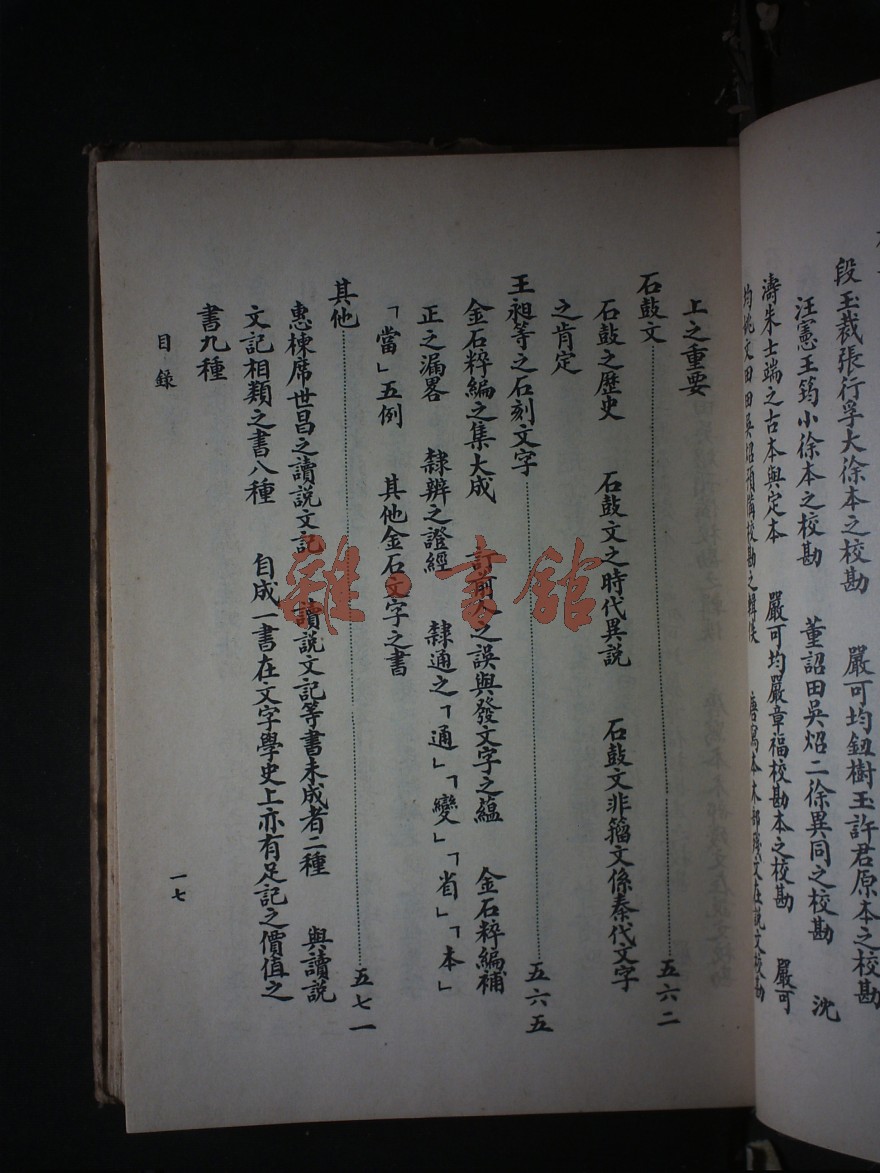 段玉裁張行孚大徐本之校勘　嚴可均鈕樹玉許君原本之校勘
汪憲王筠小徐本之校勘　董詔田吳炤二徐異同之校勘　沈
濤朱士端之古本與定本　嚴可均嚴章福校勘本之校勘　嚴可
均姚文田田吳炤預購校勘之輯佚　唐寫本木部殘文在說文校勘
上之重要
石鼓文………五六二
石鼓之歷史　石鼓文之時代異說　石鼓文非籀文係秦代文字
之肯定
王昶等之石刻文字………五六五
金石粹編之集大成　訂前人之誤與發文字之蘊　金石粹編補
正之漏畧　隸辨之證經　隸通之「通」「變」「省」「本」
「當」五例　其他金石文字之書
其他………五七一
惠棟席世昌之讀說文記　讀說文記等書未成者二種　與讀說
文記相類之書八種　自成一書在文字學史上亦有足記之價值之
書九種
目錄
一七
雜·書館